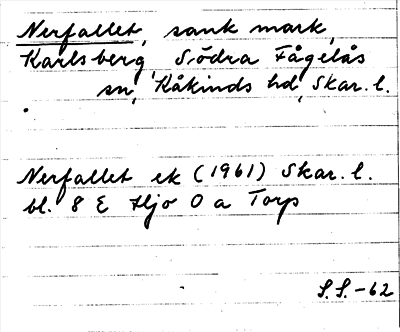 Nerfallet, sank mark,
Karlsberg, Södra Fågelås
sn, Kåkinds hd, Skar. l.
Nerfallet ek (1961) Skar. l.
bl. 8 E Hjo O a Torp
S.S.-62